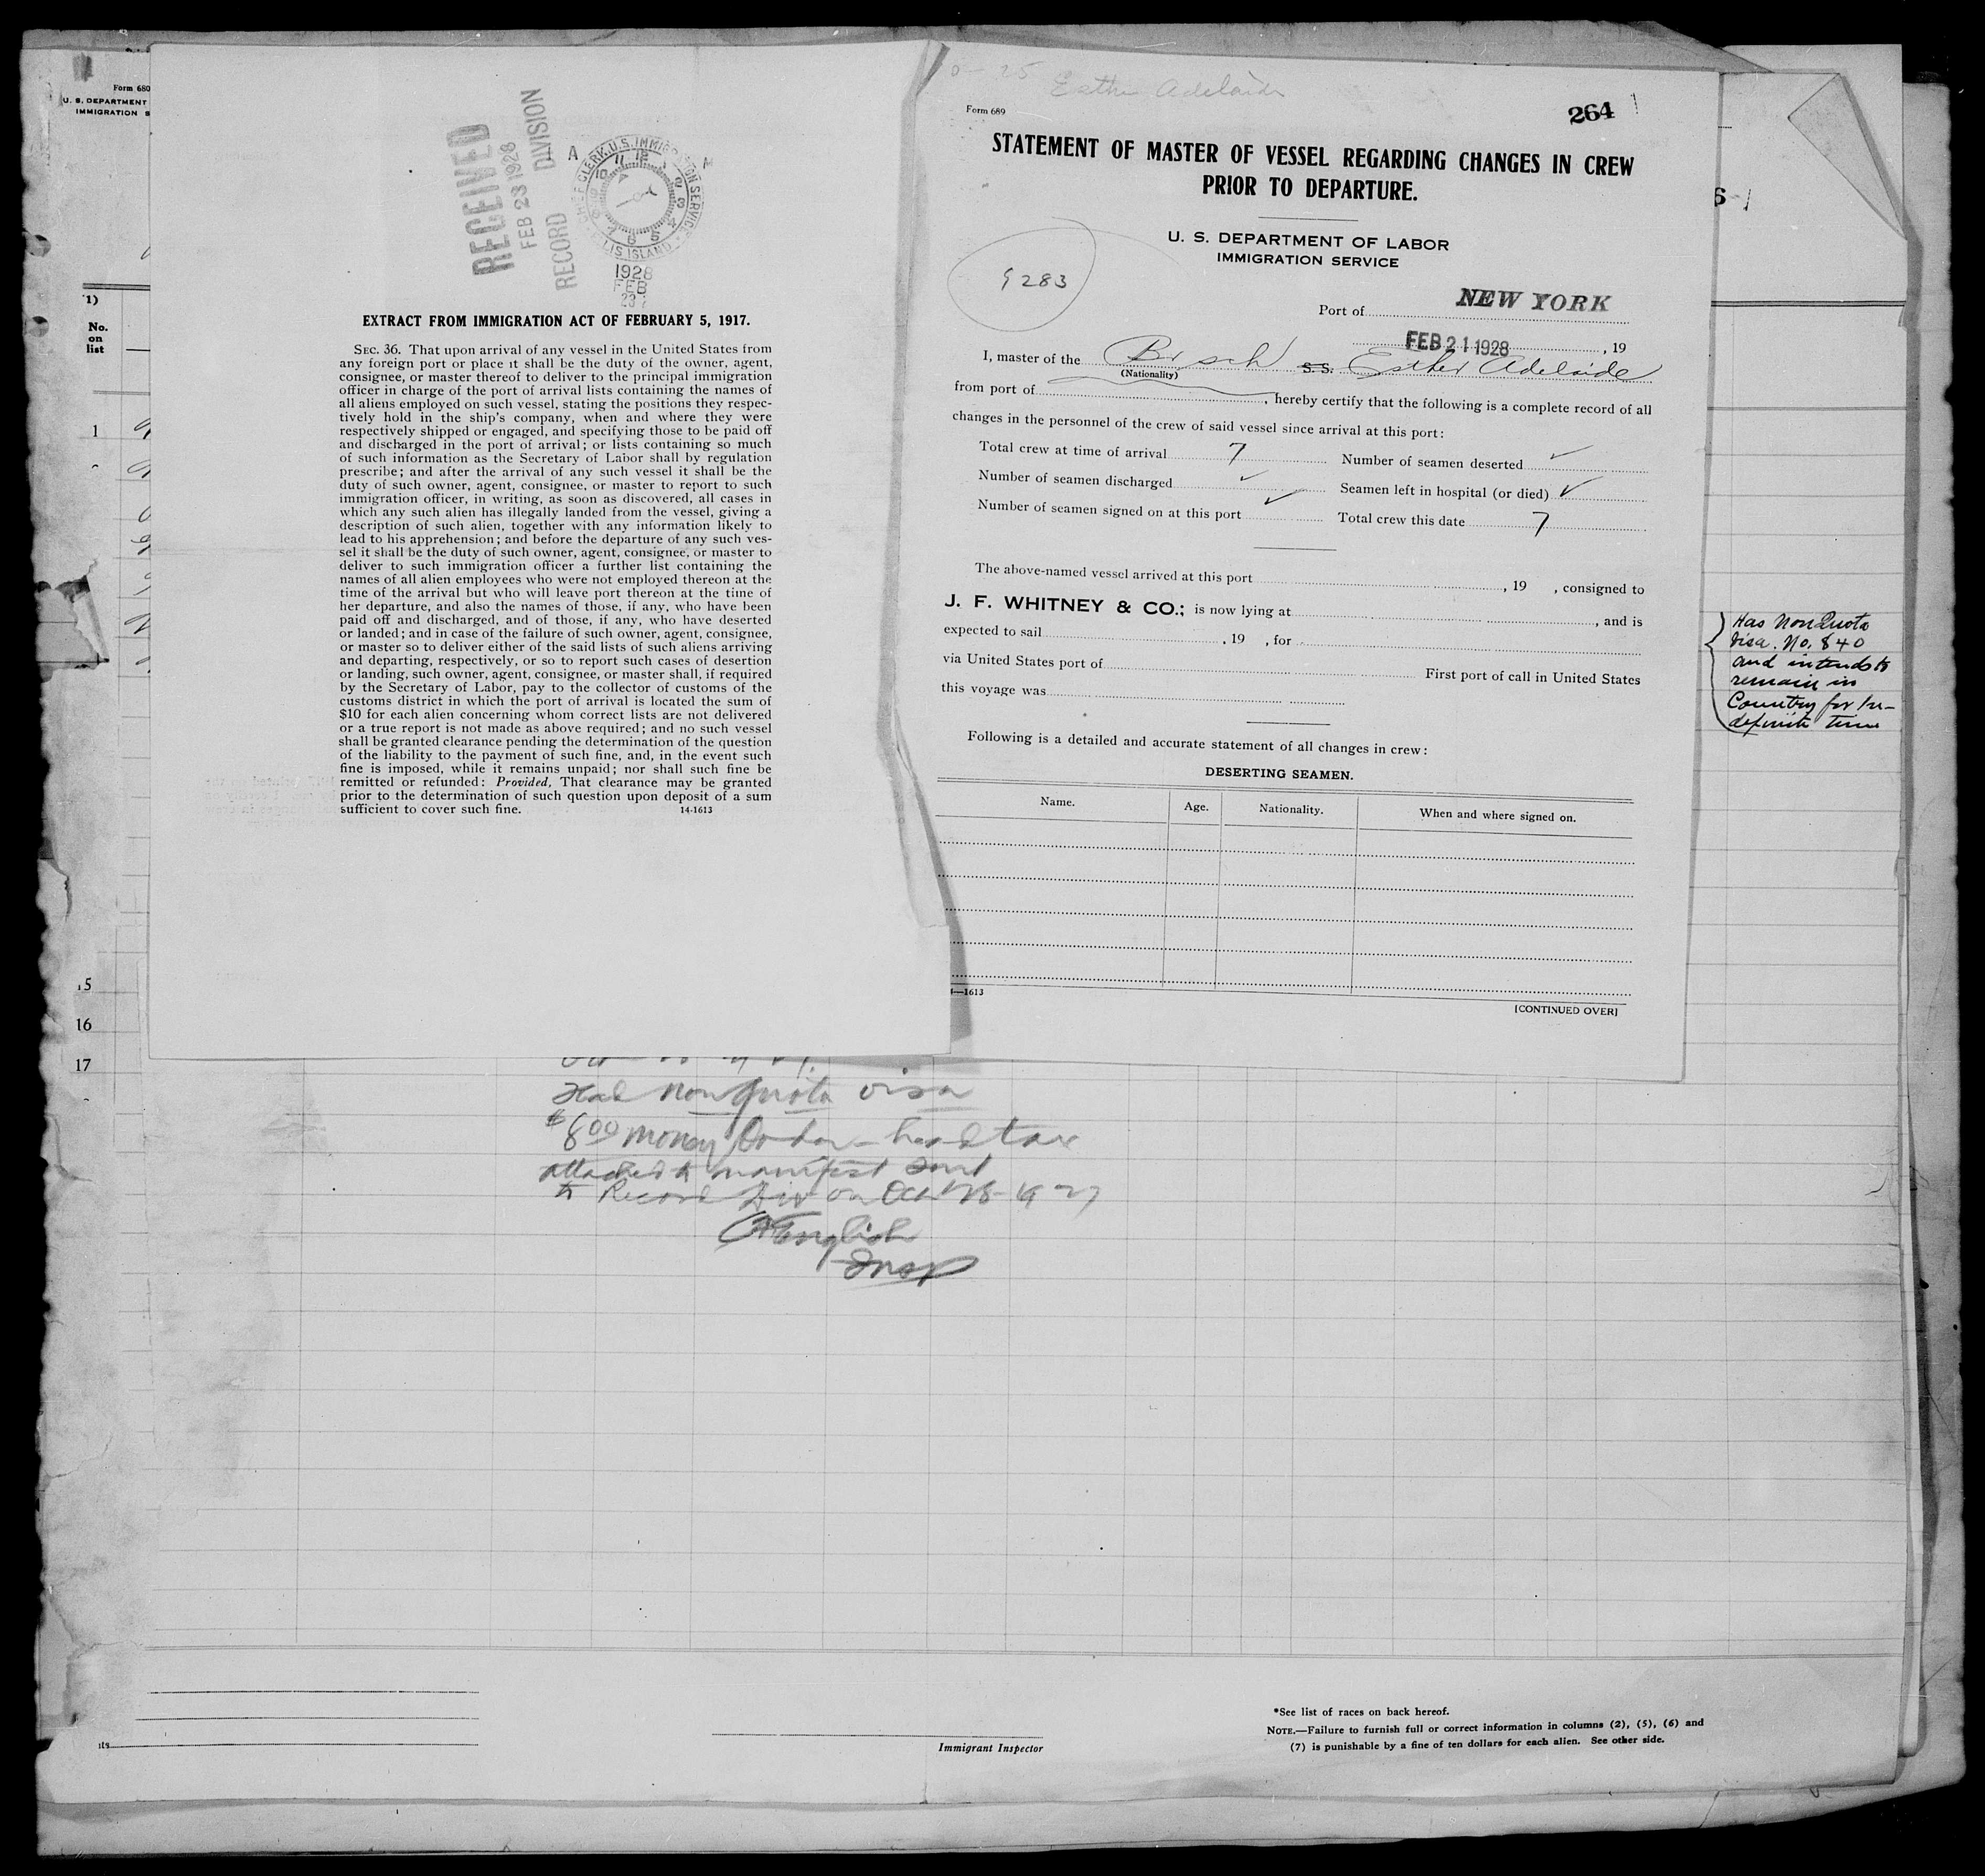 Form 680
U. S. DEPARTMENT
IMMIGRATION S
1)
No.
on
list
1
15
16
17
RECEIVED
FEB 23 1928
RECORD DIVISION
A M
CHIEF CLERK, U.S. IMMIGRATION SERVICE
ELLIS ISLAND
1928
FEB
23
EXTRACT FROM IMMIGRATION ACT OF FEBRUARY 5, 1917.
SEC. 36. That upon arrival of any vessel in the United States from
any foreign port or place it shall be the duty of the owner, agent,
consignee, or master thereof to deliver to the principal immigration
officer in charge of the port of arrival lists containing the names of
all aliens employed on such vessel, stating the positions they respec-
tively hold in the ship's company, when and where they were
respectively shipped or engaged, and specifying those to be paid off
and discharged in the port of arrival; or lists containing so much
of such information as the Secretary of Labor shall by regulation
prescribe; and after the arrival of any such vessel it shall be the
duty of such owner, agent, consignee, or master to report to such
immigration officer, in writing, as soon as discovered, all cases in
which any such alien has illegally landed from the vessel, giving a
description of such alien, together with any information likely to
lead to his apprehension; and before the departure of any such ves-
sel it shall be the duty of such owner, agent, consignee, or master to
deliver to such immigration officer a further list containing the
names of all alien employees who were not employed thereon at the
time of the arrival but who will leave port thereon at the time of
her departure, and also the names of those, if any, who have been
paid off and discharged, and of those, if any, who have deserted
or landed; and in case of the failure of such owner, agent, consignee,
or master so to deliver either of the said lists of such aliens arriving
and departing, respectively, or so to report such cases of desertion
or landing, such owner, agent, consignee, or master shall, if required
by the Secretary of Labor, pay to the collector of customs of the
customs district in which the port of arrival is located the sum of
$10 for each alien concerning whom correct lists are not delivered
or a true report is not made as above required; and no such vessel
shall be granted clearance pending the determination of the question
of the liability to the payment of such fine, and, in the event such
fine is imposed, while it remains unpaid; nor shall such fine be
remitted or refunded: Provided, That clearance may be granted
prior to the determination of such question upon deposit of a sum
sufficient to cover such fine. 14-1613
Esther Adelaide
Form 689
264
STATEMENT OF MASTER OF VESSEL REGARDING CHANGES IN CREW
PRIOR TO DEPARTURE.
U. S. DEPARTMENT OF LABOR
IMMIGRATION SERVICE
9283
Port of NEW YORK
FEB 21 1928, 19
I, master of the Br sch S.S. Esther Adelaide
(Nationality)
from port of , hereby certify that the following is a complete record of all
changes in the personnel of the crew of said vessel since arrival at this port:
Total crew at time of arrival 7 Number of seamen deserted ✓
Number of seamen discharged ✓ Seamen left in hospital (or died) ✓
Number of seamen signed on at this port ✓ Total crew this date 7
The above-named vessel arrived at this port , 19 , consigned to
J. F. WHITNEY & CO.; is now lying at , and is
expected to sail , 19 , for
via United States port of First port of call in United States
this voyage was
Following is a detailed and accurate statement of all changes in crew:
DESERTING SEAMEN.
Name. Age. Nationality. When and where signed on.
4—1613
[CONTINUED OVER]
6-1
Has NonQuota
Visa. No. 840
and intends to
remain in
Country for In-
definite time
Had Non Quota visa
$8.00 money order - head tax
attached to manifest sent
to Record Div on Oct 28-1927
English
Insp
its
Immigrant Inspector
*See list of races on back hereof.
NOTE.—Failure to furnish full or correct information in columns (2), (5), (6) and
(7) is punishable by a fine of ten dollars for each alien. See other side.